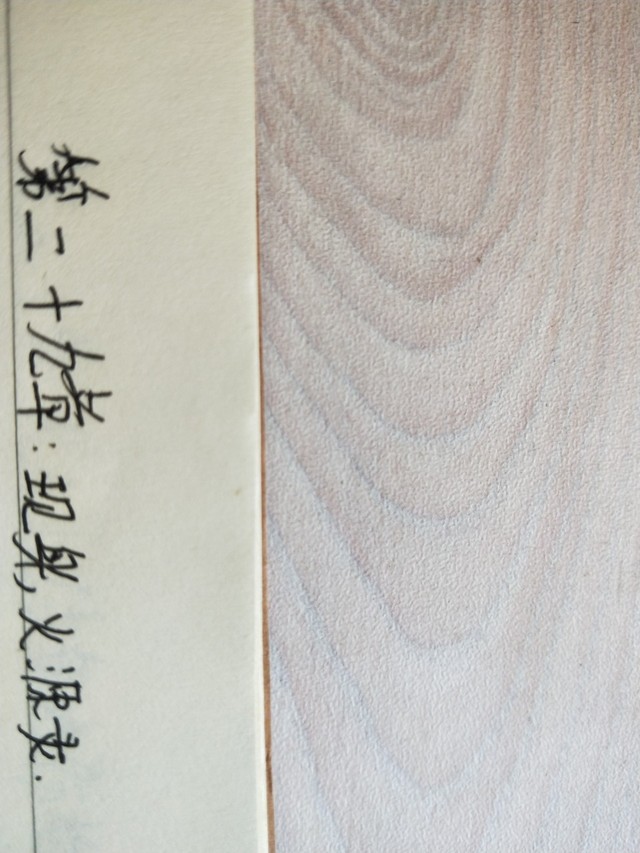 第二十九章：现身，火源灵.